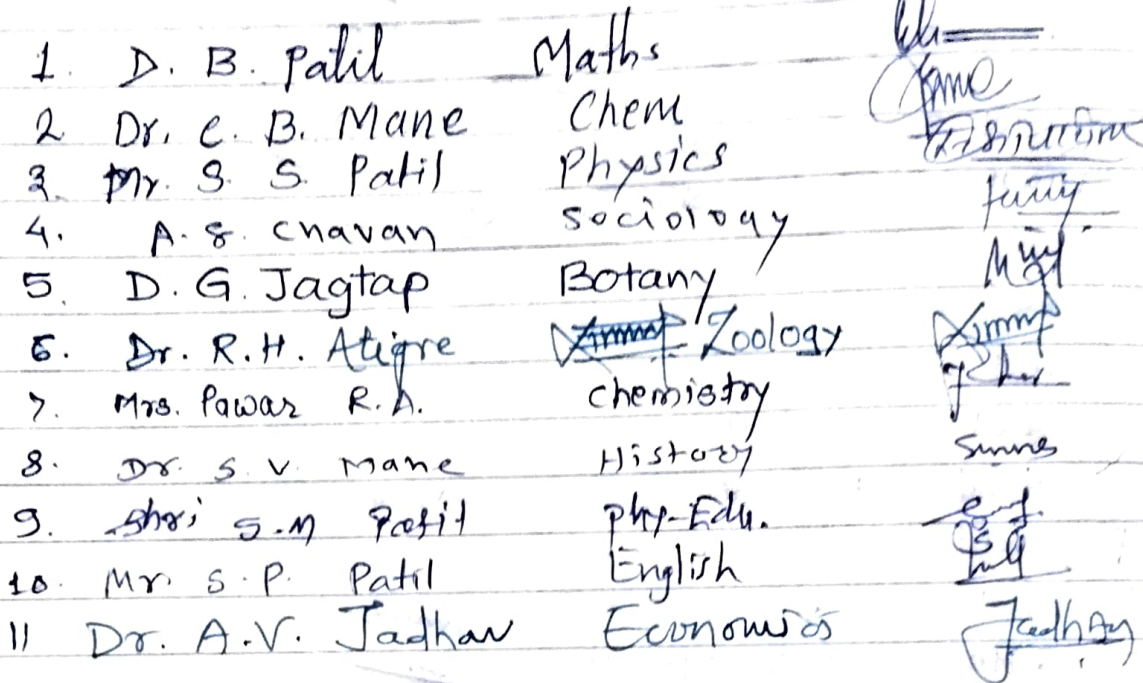 1. D. B. Patil Maths
2 Dr. C. B. Mane Chem
3. Mr. S. S. Patil Physics
4. A. S. Chavan Sociology
5. D. G. Jagtap Botany
6. Dr. R. H. Atigre Zoology
7. Mrs. Pawar R. A. Chemistry
8. Dr. S. V. Mane History
9. Shri S.M Patil Phy-Edu.
10. Mr. S. P. Patil English
11 Dr. A.V. Jadhav Economics Jadhav